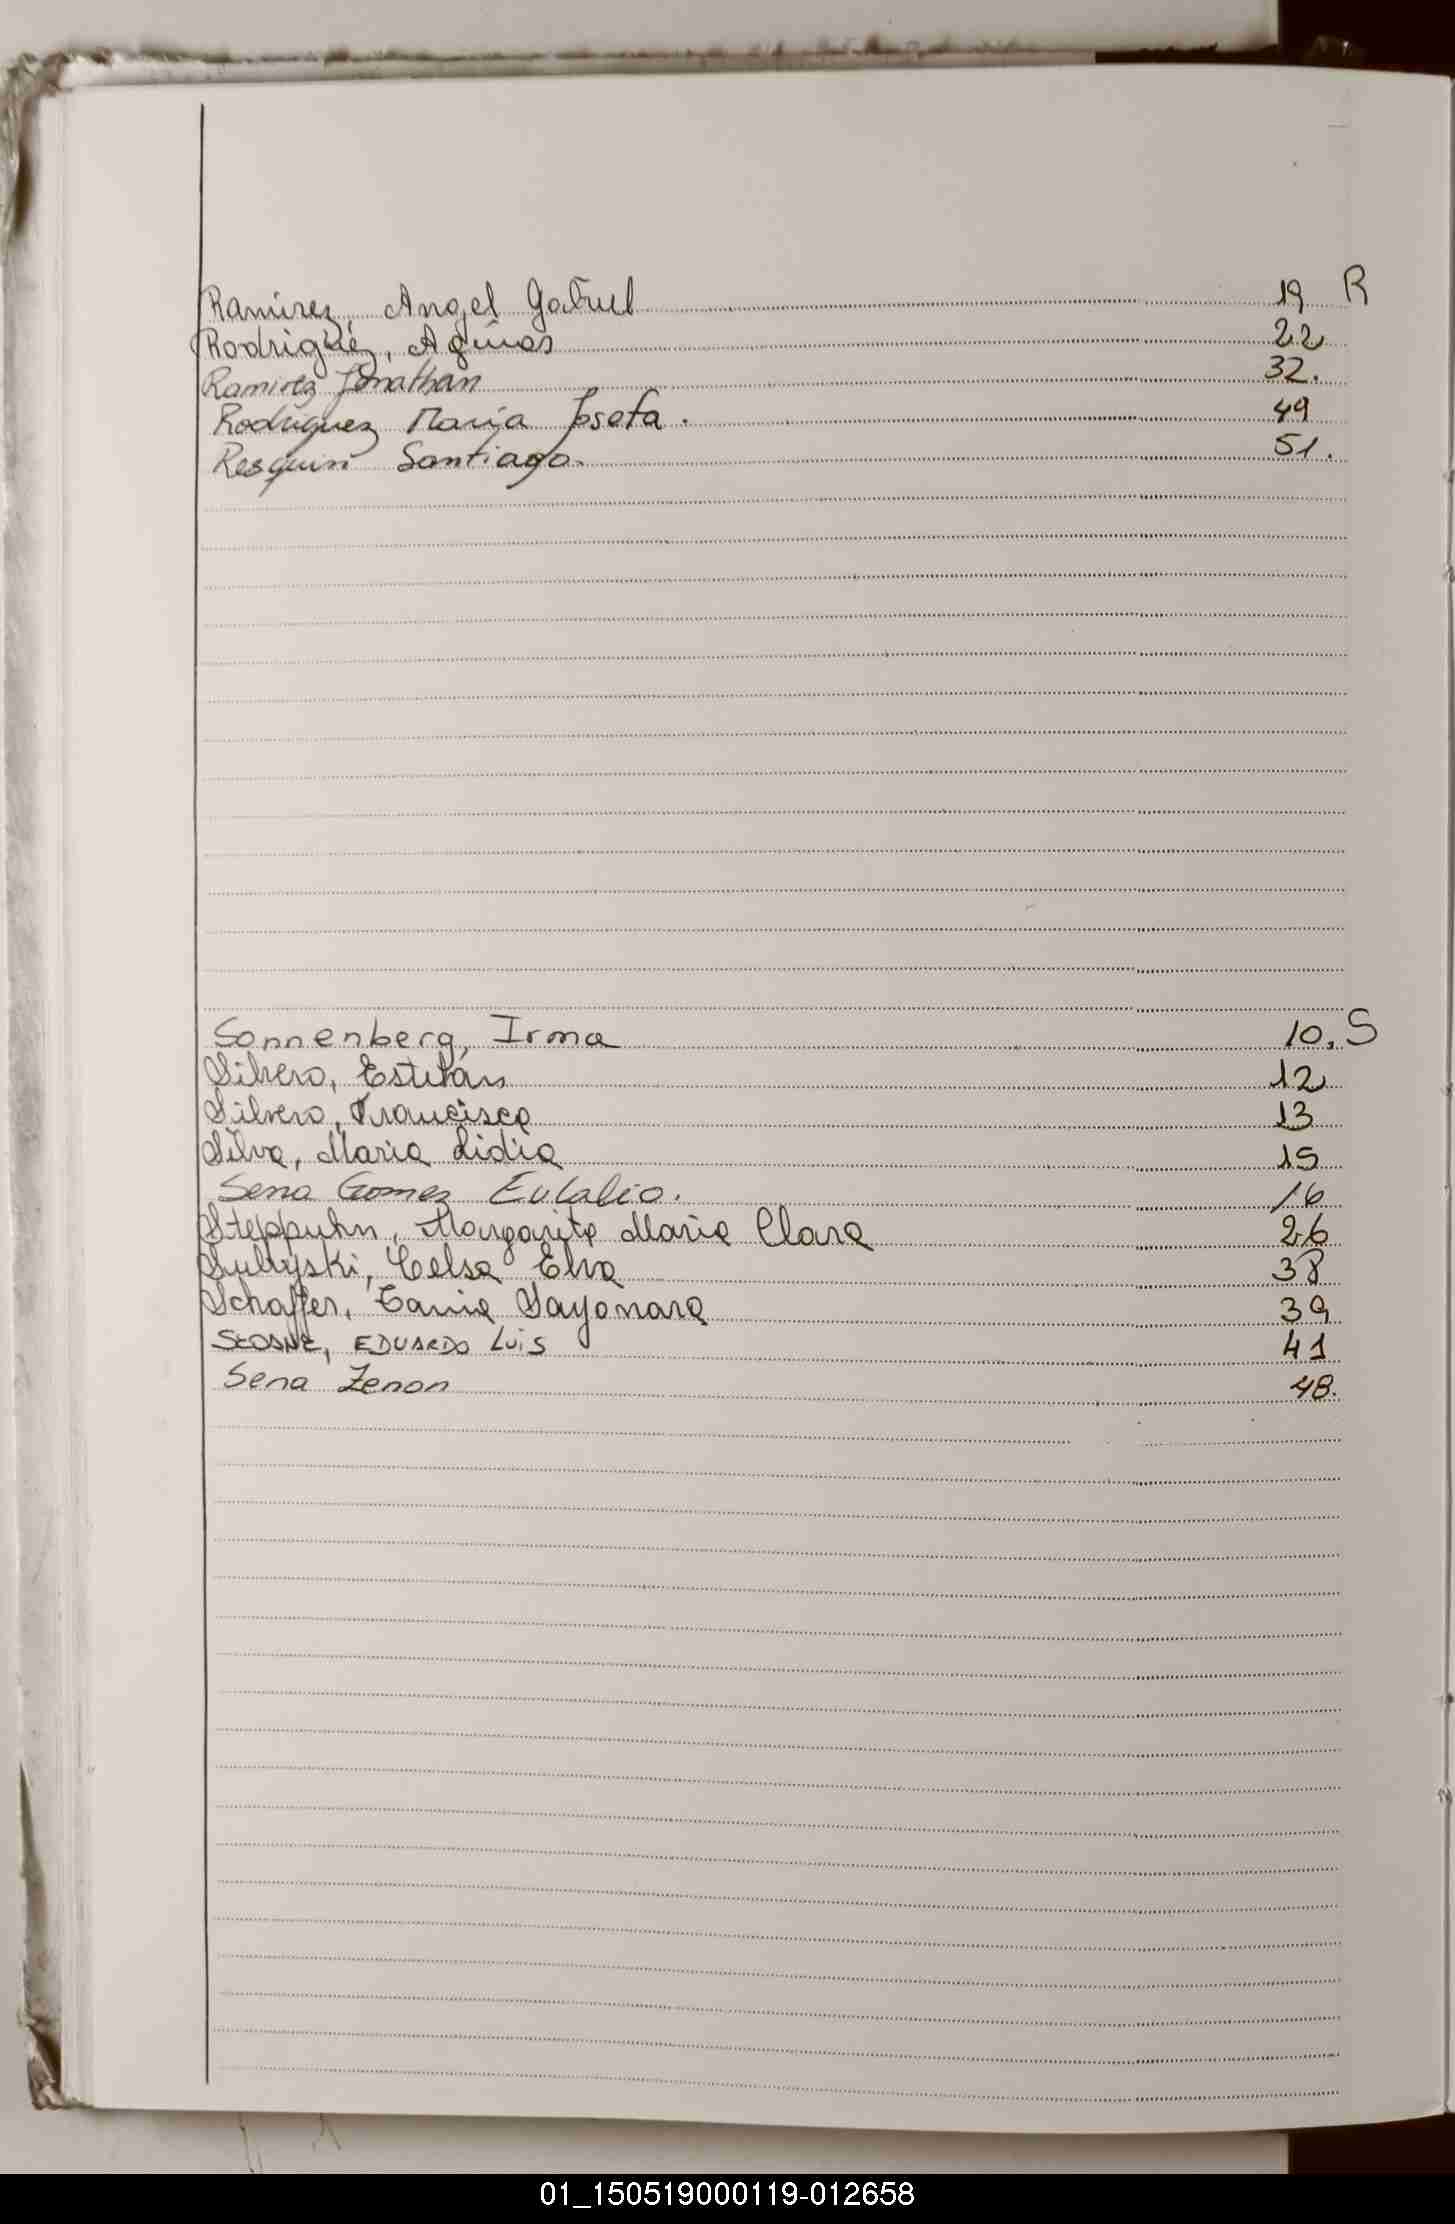 Ramirez, Angel Gabriel 19 R
Rodriguez, Aguinos 22
Ramirez Jonathan 32.
Rodriguez Maria Josefa. 49
Resquin Santiago. 51.
Sonnenberg, Irma 10. S
Silvero, Esteban 12
Silvero, Francisca 13
Silva, Maria Lidia 15
Sena Gomez Eulalio. 16
Steppuhn, Margarita Maria Clara 26
Celsa Elva 38
Schaffer, Tania Sayonara 39
EDUARDO LUIS 41
Sena Zenon 48.
01_150519000119-012658